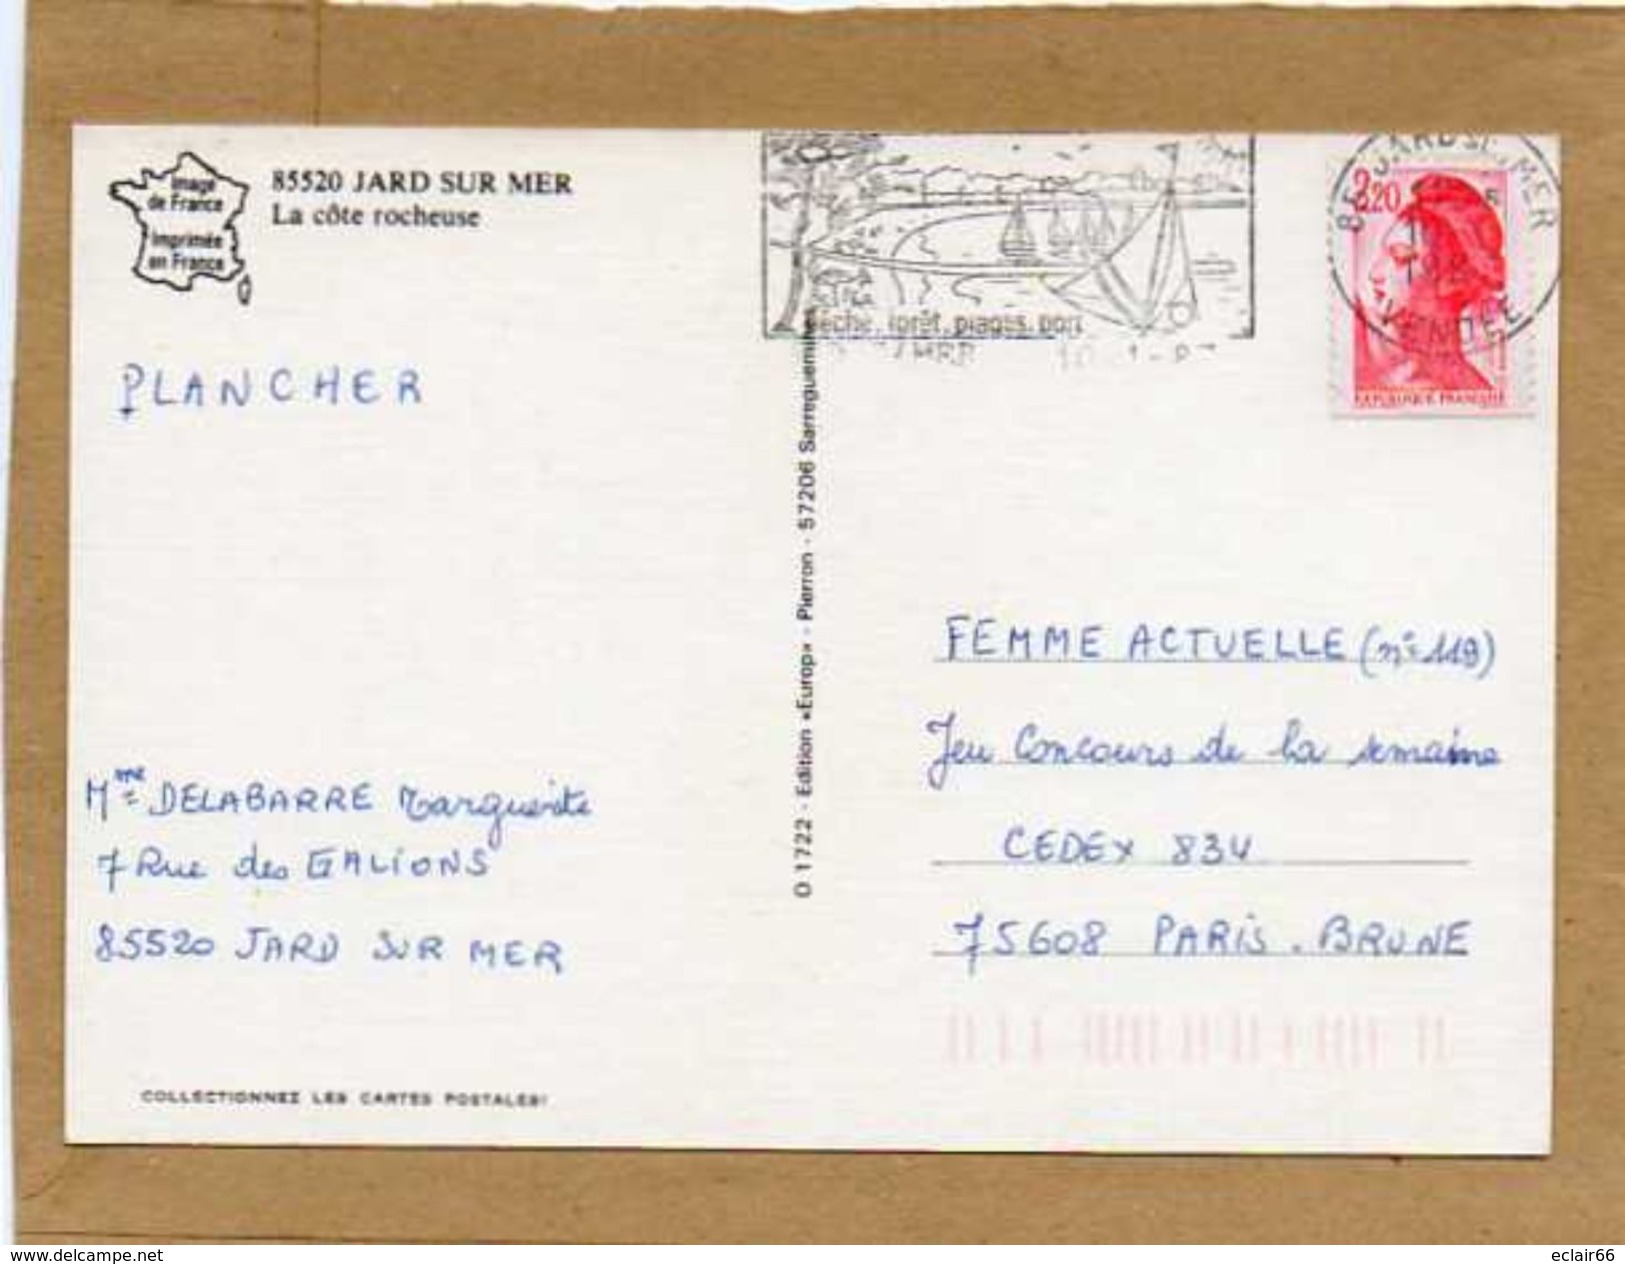 Image
de France
Imprimée
en France
85520 JARD SUR MER
La côte rocheuse
PLANCHER
Mme DELABARRE Marguerite
7 Rue des GALIONS
85520 JARD SUR MER
COLLECTIONNEZ LES CARTES POSTALES!
O 1722 - Edition «Europ» - Pierron - 57206 Sarreguemines
forêt, plages, port
JARD S. MER
VENDEE
2,20
REPUBLIQUE FRANÇAISE
FEMME ACTUELLE (n° 119)
Jeu Concours de la semaine
CEDEX 834
75608 PARIS. BRUNE
www.delcampe.net
eclair66